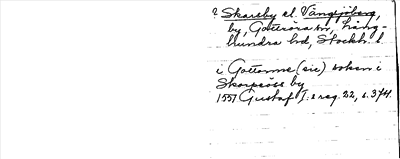 ? Skarsby el. Vängsjöberg,
by, Gottröra sn, Lång-
hundra hd, Stockh. l.
i Gottorme (sic) soken i
by
1557 Gustaf I:s reg. 22, s. 374.